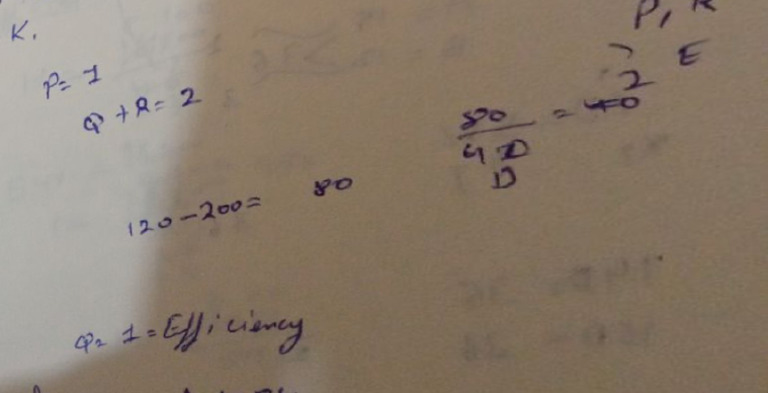 K.
P, R
P= 1
Q + R = 2
2 E
80 / 40 =
D
120 - 200 = 80
Q = 1 = Efficiency